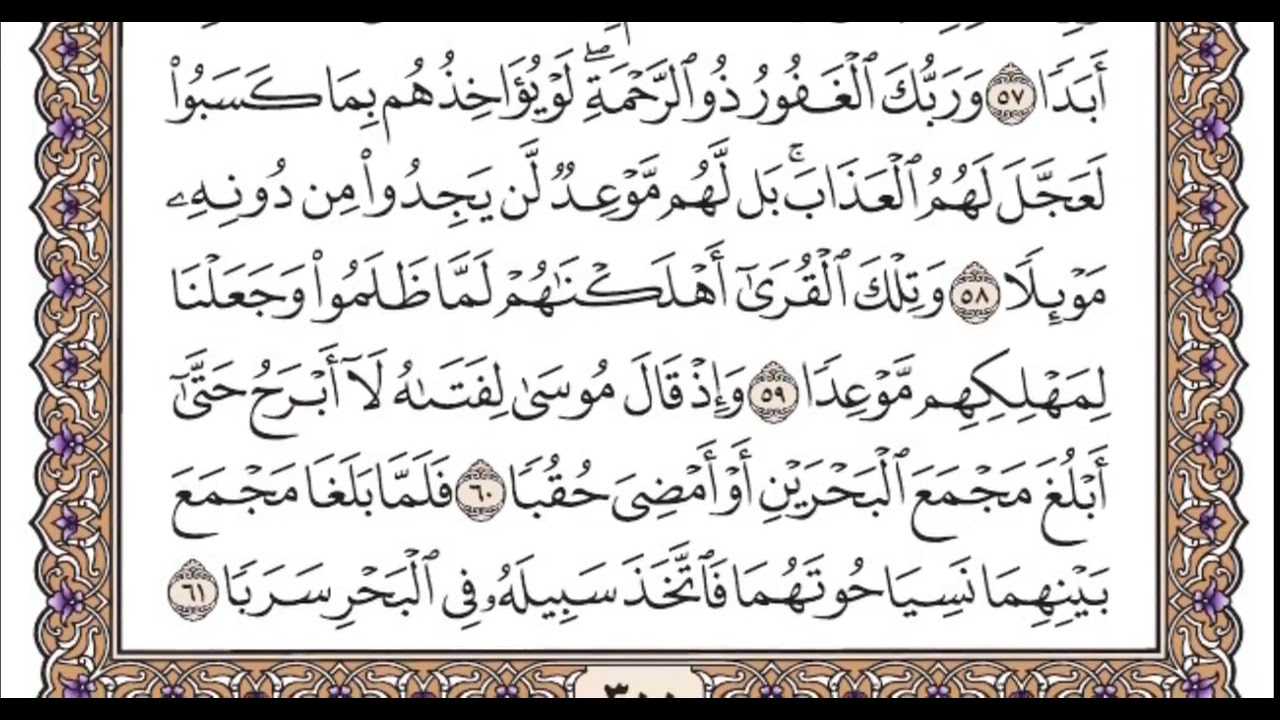 أَبَدٗا ٥٧ وَرَبُّكَ ٱلۡغَفُورُ ذُو ٱلرَّحۡمَةِۖ لَوۡ يُؤَاخِذُهُم بِمَا كَسَبُواْ
لَعَجَّلَ لَهُمُ ٱلۡعَذَابَۚ بَل لَّهُم مَّوۡعِدٞ لَّن يَجِدُواْ مِن دُونِهِۦ
مَوۡئِلٗا ٥٨ وَتِلۡكَ ٱلۡقُرَىٰٓ أَهۡلَكۡنَٰهُمۡ لَمَّا ظَلَمُواْ وَجَعَلۡنَا
لِمَهۡلِكِهِم مَّوۡعِدٗا ٥٩ وَإِذۡ قَالَ مُوسَىٰ لِفَتَىٰهُ لَآ أَبۡرَحُ حَتَّىٰٓ
أَبۡلُغَ مَجۡمَعَ ٱلۡبَحۡرَيۡنِ أَوۡ أَمۡضِيَ حُقُبٗا ٦٠ فَلَمَّا بَلَغَا مَجۡمَعَ
بَيۡنِهِمَا نَسِيَا حُوتَهُمَا فَٱتَّخَذَ سَبِيلَهُۥ فِي ٱلۡبَحۡرِ سَرَبٗا ٦١